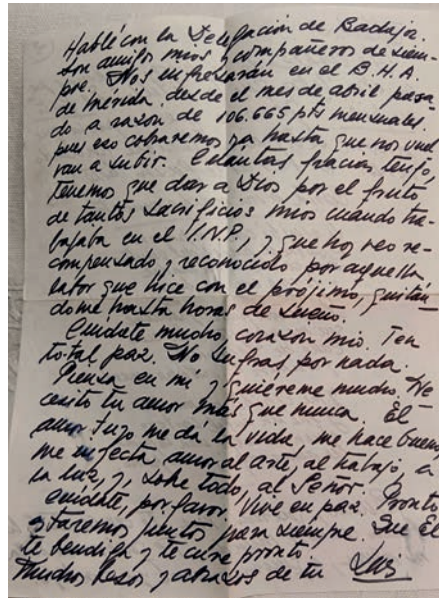 Hablé con la Delegación de Badajoz.
Son amigos mios y compañeros de siem-
pre. Nos ingresarán en el B.H.A.
de Mérida, desde el mes de abril pasa-
do a razón de 106.665 pts mensuales.
pues eso cobraremos ya hasta que nos vuel
van a subir. Cuántas gracias tengo,
tenemos que dar a Dios por el fruto
de tantos sacrificios mios cuando tra-
bajaba en el I.N.P., y que hoy veo re-
compensado y reconocido por aquella
labor que hice con el prójimo, quitán-
dome hasta horas de sueño.
Cuídate mucho corazón mio. Ten
total paz. No sufras por nada.
Piensa en mi y quiéreme mucho. Ne
cesito tu amor más que nunca. El
amor tuyo me dá la vida, me hace bueno,
me inyecta amor al arte, al trabajo, a
la luz, y, sobre todo, al Señor. Pronto
cuídate, por favor. Vive en paz.
estaremos juntos para siempre. Que Él
te bendiga y te cure pronto.
Muchos besos y abrazos de tu Luis